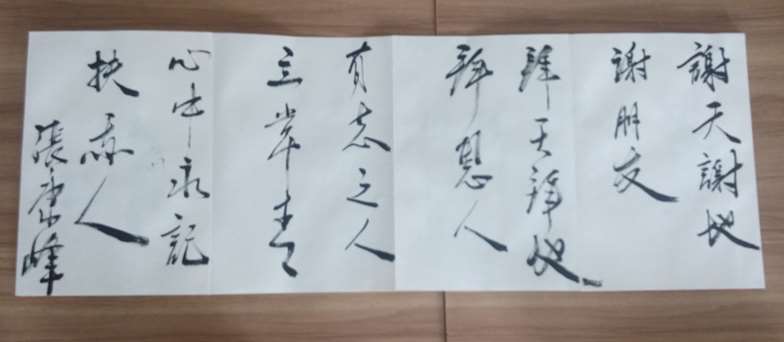 謝天謝地
謝朋友
拜天拜地
拜恩人
有志之人
心中永記
扶人
張峰